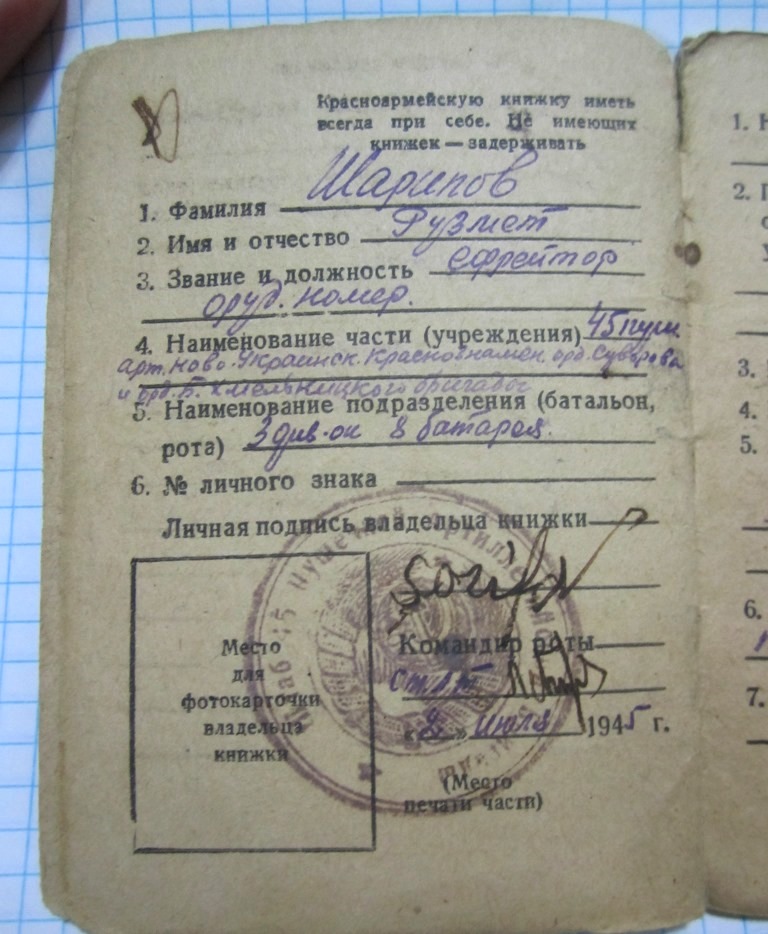 Красноармейскую книжку иметь
всегда при себе. Не имеющих
книжек — задерживать
1. Фамилия Шарипов
2. Имя и отчество Рузмет
3. Звание и должность ефрейтор
оруд. номер.
4. Наименование части (учреждения) 45 пуш
арт. Ново-Украинск. Краснознамен. орд. Суворова
и орд. Б. Хмельницкого бригады
5. Наименование подразделения (батальон,
рота) 3 див-он 8 батарея.
6. № личного знака
Личная подпись владельца книжки
Командир роты
ст. л-т
«2» июля 1945 г.
(Место
печати части)
Место
для
фотокарточки
владельца
книжки
1.
2.
3.
4.
5.
6.
7.